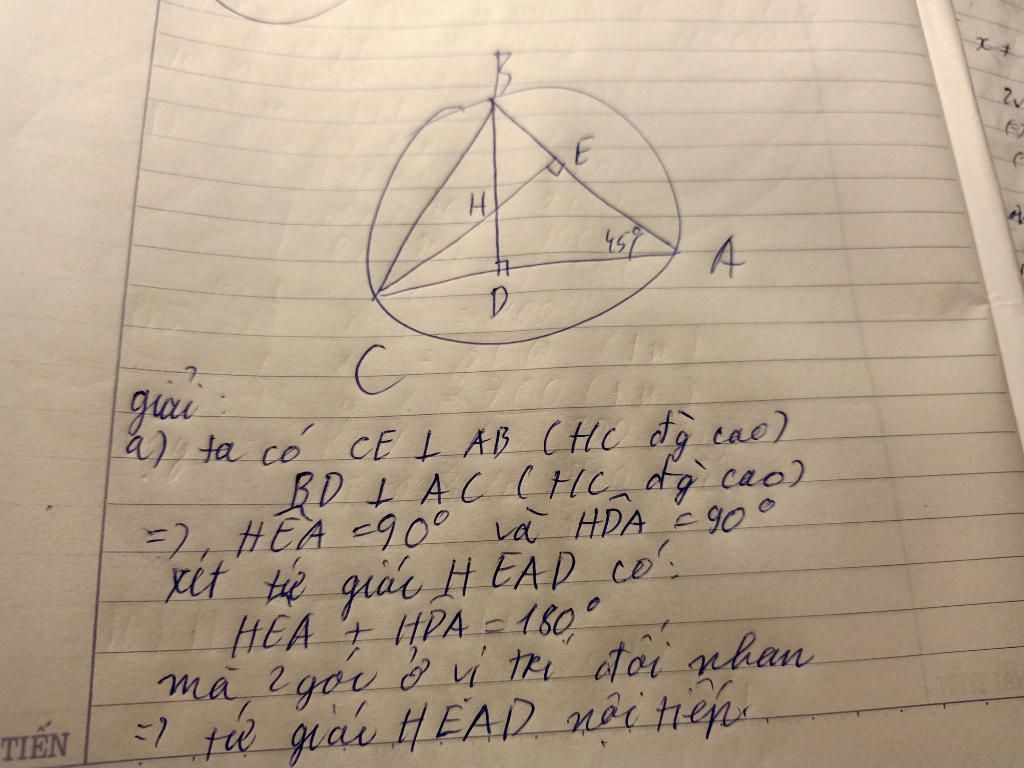 B
E
H
45°
A
D
C
giải:
a) ta có CE ⊥ AB (HC đg cao)
BD ⊥ AC (HC đg cao)
=> HÊA = 90° và HDÂ = 90°
xét tứ giác HEAD có:
HEA + HDA = 180°
mà 2 góc ở vị trí đối nhau
=> tứ giác HEAD nội tiếp.
TIẾN
x +